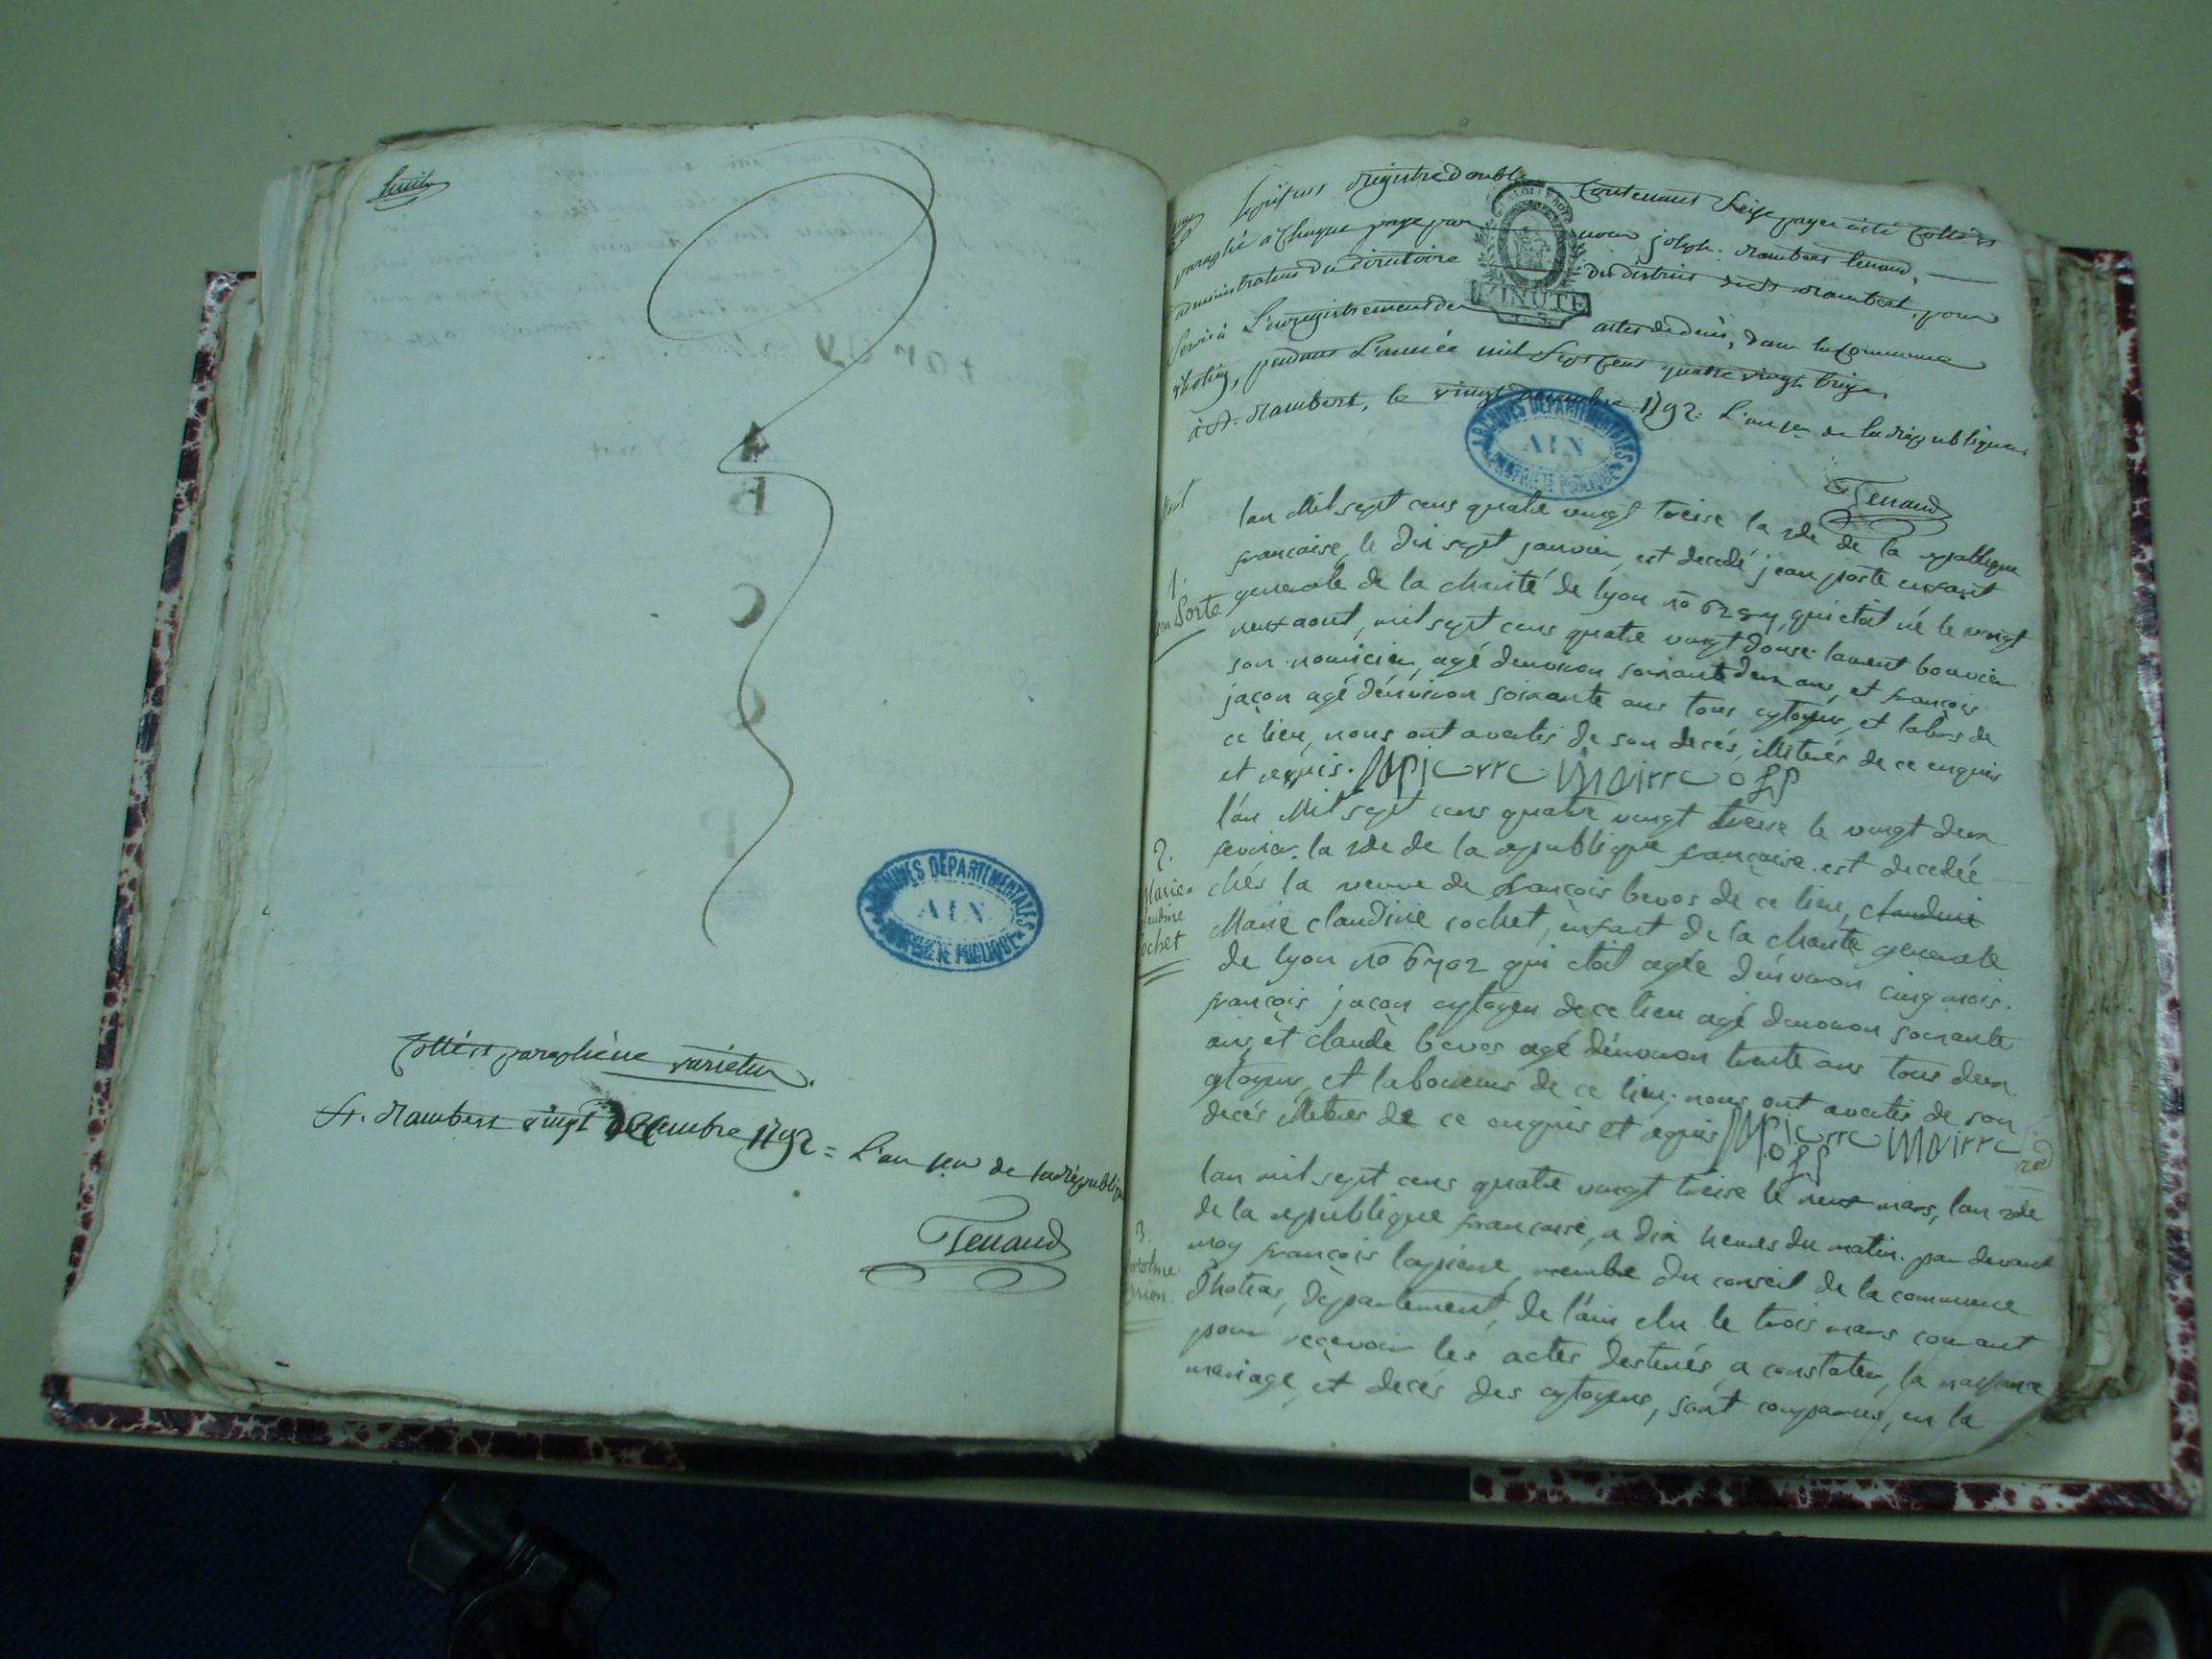 huit
ARCHIVES DEPARTEMENTALES
AIN
PROPRIETE PUBLIQUE
Cotté et paraphé ne varietur.
St. Rambert vingt Décembre 1792 = L'an 1er de la République
Tenand
Le présent Registre double Contenant Seize pages a été Cotté et
paraphé a Chaque page par nous joseph. Rambert tenand,
administrateur du directoire du district de St. Rambert, pour
Servir à L'enregistrement des actes de décès, dans la Commune
d'hotias, pendant L'année mil Sept Cent quatre vingt treize,
à St. Rambert, le vingt Décembre 1792. L'an 1er de la République
MINUTE
ARCHIVES DEPARTEMENTALES
AIN
PROPRIETE PUBLIQUE
Tenand
lan Mil sept cens quatre vingt treise la 2de de la republique
francaise, le dix sept janvier, est decedé jean porte enfant
1.
porte
generale de la charité de lyon no qui etoit né le vingt
neuf aout, mil sept cens quatre vingt douse. laurent bouvier
son nouricier, agé denviron soixante deux ans, et françois
jaçon agé dénviron soixante ans tous cytoyens, et labrs de
ce lieu, nous ont avertis de son decés, illiterés de ce enquis
et requis. pierre Mairre off
l'an Mil sept cens quatre vingt treise le vingt deux
2.
fevrier. la 2de de la republique française. est decedée
Marie
claudine
cochet
chés la veuve de françois bevos de ce lieu, claudine
Marie claudine cochet, enfant de la charité generale
de lyon no 6702 qui etoit agée dénviron cinq mois.
françois jaçon cytoyen de ce lieu agé denviron soixante
ans, et claude bevos agé dénviron trente ans tous deux
cytoyens, et laboureurs de ce lieu, nous ont avertis de son
decés illiterés de ce enquis et requis pierre Mairre
off
lan mil sept cens quatre vingt treise le neuf mars, lan 2de
de la republique francaise, a dix heures du matin. par devant
3.
moy françois lapierre membre du conseil de la commune
d'hotias, département, de l'ain elu le trois mars courant
pour reçevoir les actes destinés a constater, la naissance
mariage, et decés des cytoyens, sont comparus, en la